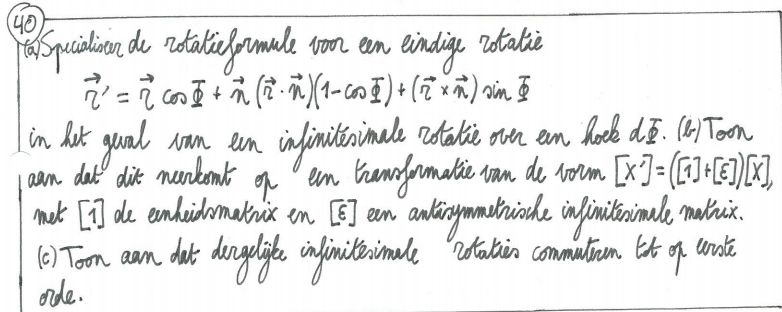 40
(a) Specialiseer de rotatieformule voor een eindige rotatie
r⃗' = r⃗ cos Φ + n⃗ (r⃗ · n⃗)(1-cos Φ) + (r⃗ × n⃗) sin Φ
in het geval van een infinitesimale rotatie over een hoek dΦ. (b) Toon
aan dat dit neerkomt op een transformatie van de vorm [X'] = ([1]+[ε])[X],
met [1] de eenheidsmatrix en [ε] een antisymmetrische infinitesimale matrix.
(c) Toon aan dat dergelijke infinitesimale rotaties commuteren tot op eerste
orde.